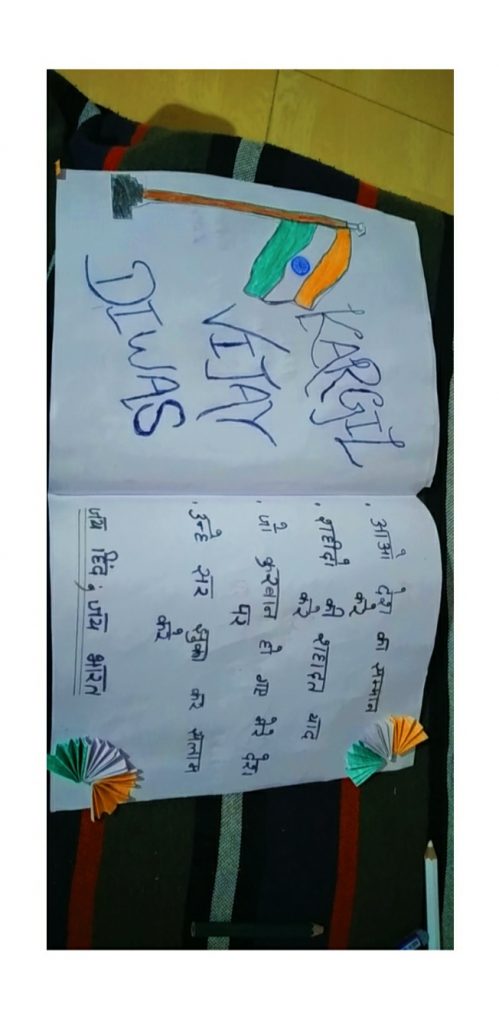 KARGIL
VIJAY
DIWAS
• आओ देश का सम्मान
करे
• शहीदों की शहादत याद
करे
• जो कुरबान हो गए मेरे देश
पर
• उन्हे सर झुका कर सलाम
करे
जय हिंद; जय भारत